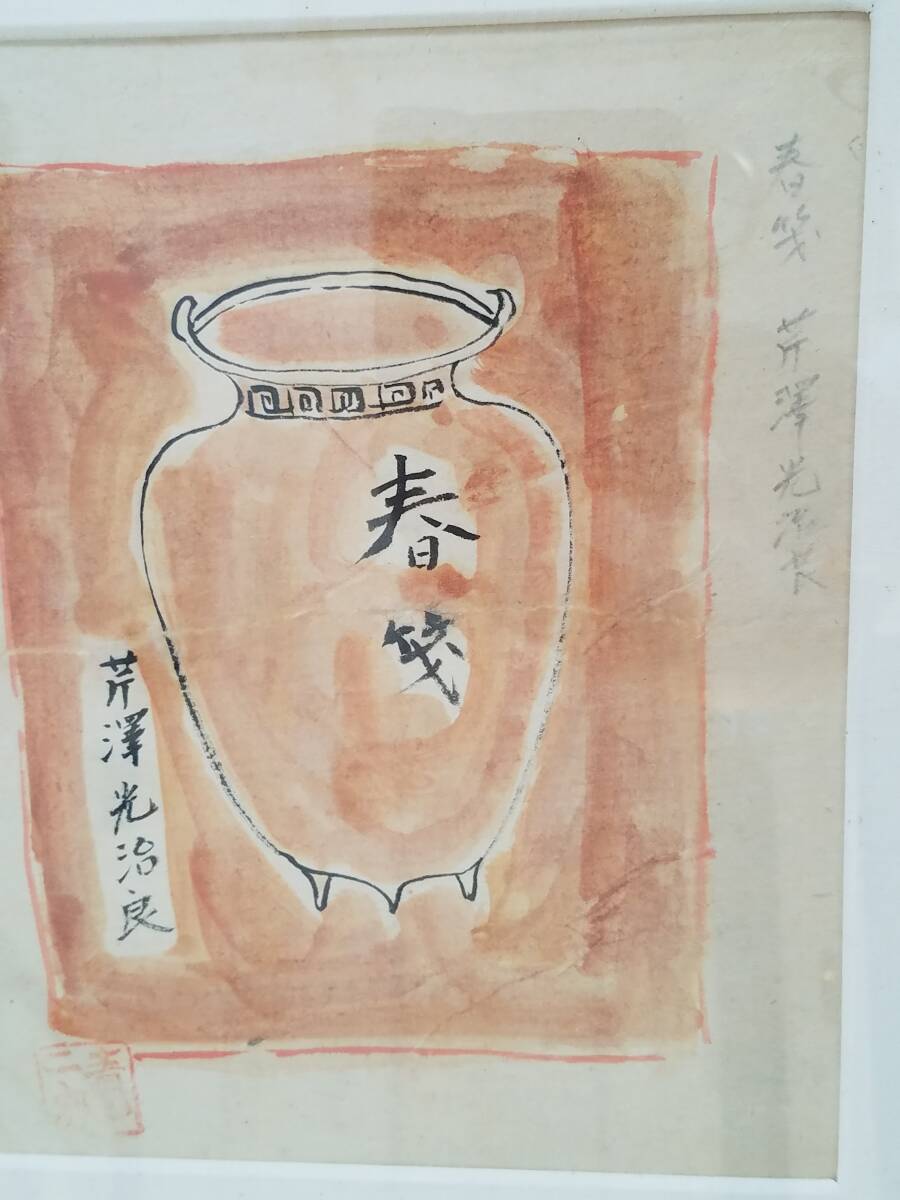 春箋 芹澤光治良
春箋
芹澤光治良